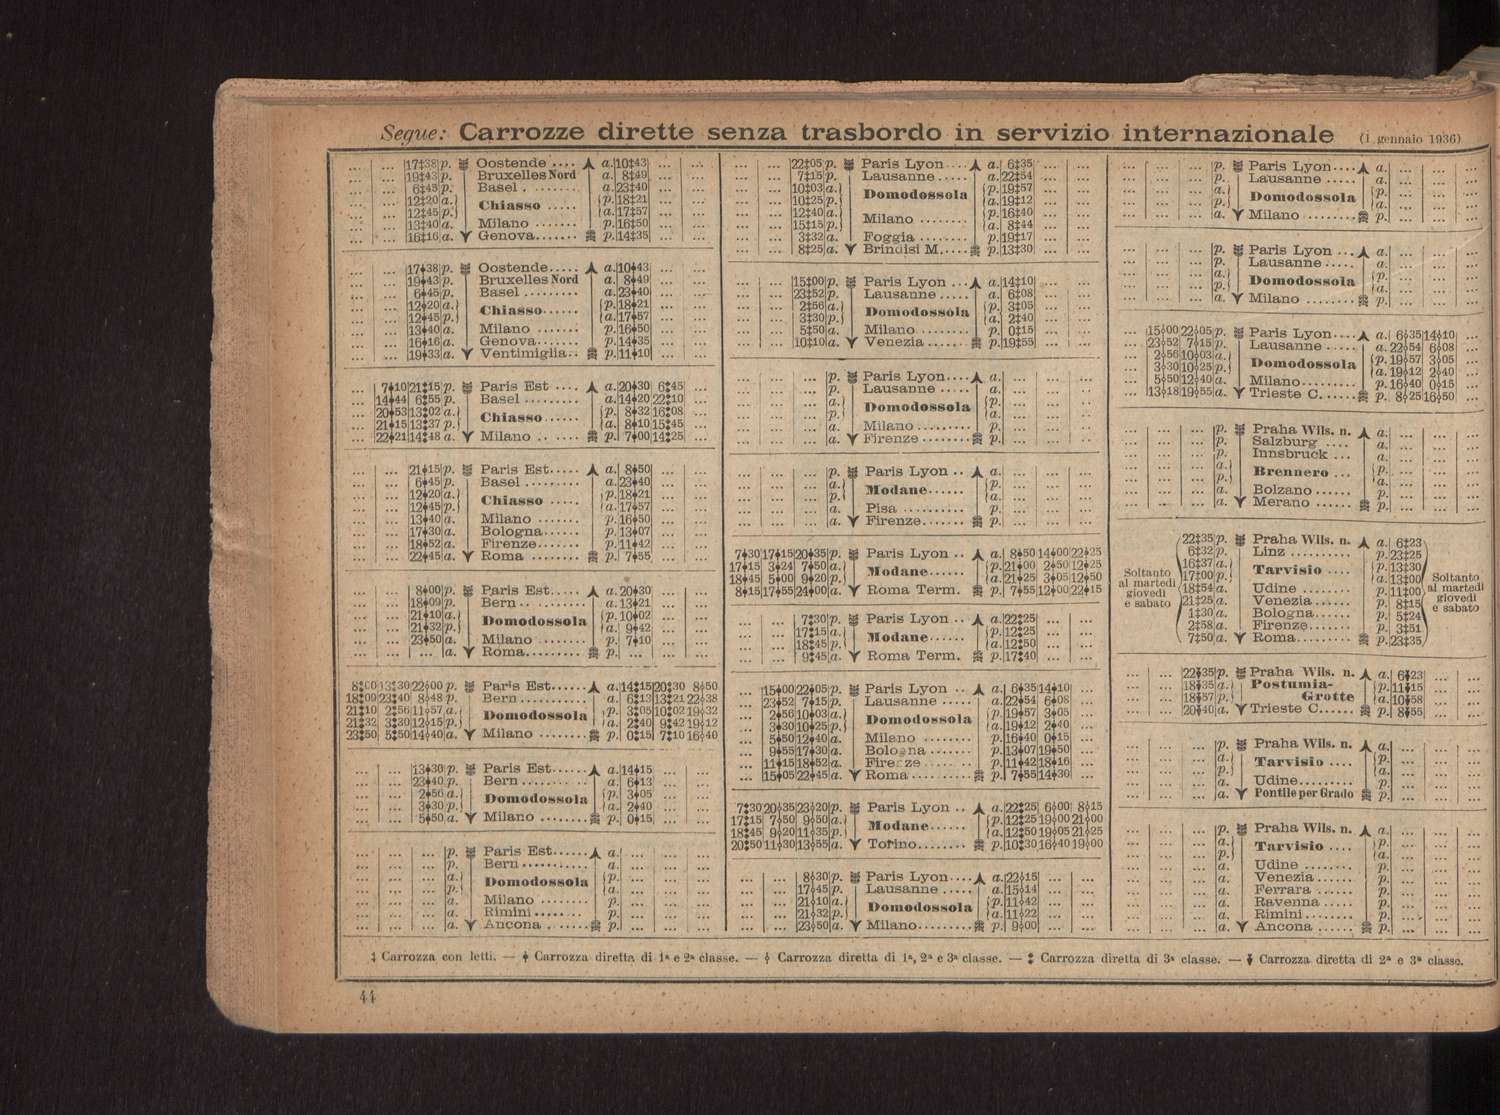 Segue: Carrozze dirette senza trasbordo in servizio internazionale (1 gennaio 1936)
17‡38 p. Oostende .... a. 10‡43
19‡43 p. Bruxelles Nord a. 8‡49
6‡45 p. Basel . ........ a. 23‡40
12‡20 a. Chiasso ..... p. 18‡21
12‡45 p. a. 17‡57
13‡40 a. Milano ....... p. 16‡50
16‡16 a. Genova....... p. 14‡35
17♦38 p. Oostende..... a. 10♦43
19♦43 p. Bruxelles Nord a. 8♦49
6♦45 p. Basel ......... a. 23♦40
12♦20 a. Chiasso...... p. 18♦21
12♦45 p. a. 17♦57
13♦40 a. Milano ....... p. 16♦50
16♦16 a. Genova....... p. 14♦35
19♦33 a. Ventimiglia.. p. 11♦10
7♦10 21‡15 p. Paris Est .... a. 20♦30 6‡45
14♦44 6‡55 p. Basel ......... a. 14♦20 22‡10
20♦53 13‡02 a. Chiasso...... p. 8♦32 16‡08
21♦15 13‡37 p. a. 8♦10 15‡45
22♦21 14‡48 a. Milano .. .... p. 7♦00 14‡25
21♦15 p. Paris Est..... a. 8♦50
6♦45 p. Basel ......... a. 23♦40
12♦20 a. Chiasso ..... p. 18♦21
12♦45 p. a. 17♦57
13♦40 a. Milano ....... p. 16♦50
17♦30 a. Bologna...... p. 13♦07
18♦52 a. Firenze....... p. 11♦42
22♦45 a. Roma ........ p. 7♦55
8♦00 p. Paris Est..... a. 20♦30
18♦09 p. Bern.. ......... a. 13♦21
21♦10 a. Domodossola p. 10♦02
21♦32 p. a. 9♦42
23♦50 a. Milano ....... p. 7♦10
... a. Roma......... p. ...
8‡00 13‡30 22◊00 p. Paris Est...... a. 14‡15 20‡30 8◊50
18‡09 23‡40 8◊48 p. Bern........... a. 6‡13 13‡21 22◊38
21‡10 2‡56 11◊57 a. Domodossola p. 3‡05 10‡02 19◊32
21‡32 3‡30 12◊15 p. a. 2‡40 9‡42 19◊12
23‡50 5‡50 14◊40 a. Milano ....... p. 0‡15 7‡10 16◊40
13♦30 p. Paris Est...... a. 14♦15
23♦40 p. Bern........... a. 6♦13
2♦56 a. Domodossola p. 3♦05
3♦30 p. a. 2♦40
5♦50 a. Milano ....... p. 0♦15
p. Paris Est...... a.
p. Bern........... a.
a. Domodossola p.
p. a.
a. Milano ........ p.
a. Rimini......... p.
a. Ancona ....... p.
22‡05 p. Paris Lyon.... a. 6‡35
7‡15 p. Lausanne ..... a. 22‡54
10‡03 a. Domodossola p. 19‡57
10‡25 p. a. 19‡12
12‡40 a. Milano ........ p. 16‡40
15‡15 p. a. 8‡44
3‡32 a. Foggia ........ p. 19‡17
8‡25 a. Brindisi M.... p. 13‡30
15‡00 p. Paris Lyon ... a. 14‡10
23‡52 p. Lausanne ..... a. 6‡08
2‡56 a. Domodossola p. 3‡05
3‡30 p. a. 2‡40
5‡50 a. Milano ........ p. 0‡15
10‡10 a. Venezia....... p. 19‡55
p. Paris Lyon.... a.
p. Lausanne ..... a.
a. Domodossola p.
p. a.
a. Milano ........ p.
a. Firenze........ p.
p. Paris Lyon .. a.
a. Modane...... p.
p. a.
a. Pisa .......... p.
a. Firenze....... p.
7‡30 17‡15 20‡35 p. Paris Lyon .. a. 8♦50 14♦00 22♦25
17‡15 3‡24 7♦50 a. Modane...... p. 21♦00 2♦50 12♦25
18‡45 5♦00 9♦20 p. a. 21♦25 3♦05 12♦50
8♦15 17♦55 24♦00 a. Roma Term. p. 7♦55 12♦00 22♦15
7‡30 p. Paris Lyon .. a. 22‡25
17‡15 a. Modane...... p. 12‡25
18‡45 p. a. 12‡50
9‡45 a. Roma Term. p. 17‡40
15◊00 22◊05 p. Paris Lyon .. a. 6◊35 14◊10
23◊52 7◊15 p. Lausanne .... a. 22◊54 6◊08
2◊56 10◊03 a. Domodossola p. 19◊57 3◊05
3◊30 10◊25 p. a. 19◊12 2◊40
5◊50 12◊40 a. Milano ....... p. 16◊40 0◊15
9◊55 17◊30 a. Bologna ...... p. 13◊07 19◊50
11◊15 18◊52 a. Firenze ...... p. 11◊42 18◊16
15◊05 22◊45 a. Roma ......... p. 7◊55 14◊30
7‡30 20◊35 23◊20 p. Paris Lyon .. a. 22‡25 6◊00 8◊15
17‡15 7◊50 9◊50 a. Modane...... p. 12‡25 19◊00 21◊00
18‡45 9◊20 11◊35 p. a. 12‡50 19◊05 21◊25
20‡50 11◊30 13◊55 a. Torino........ p. 10‡30 16◊40 19◊00
8◊30 p. Paris Lyon.... a. 22◊15
17◊45 p. Lausanne ..... a. 15◊14
21◊10 a. Domodossola p. 11◊42
21◊32 p. a. 11◊22
23◊50 a. Milano......... p. 9◊00
p. Paris Lyon.... a.
p. Lausanne ..... a.
a. Domodossola p.
p. a.
a. Milano ........ p.
p. Paris Lyon ... a.
p. Lausanne..... a.
a. Domodossola p.
p. a.
a. Milano ........ p.
15◊00 22◊05 p. Paris Lyon.... a. 6◊35 14◊10
23◊52 7◊15 p. Lausanne ..... a. 22◊54 6◊08
2◊56 10◊03 a. Domodossola p. 19◊57 3◊05
3◊30 10◊25 p. a. 19◊12 2◊40
5◊50 12◊40 a. Milano......... p. 16◊40 0◊15
13◊18 19◊55 a. Trieste C...... p. 8◊25 16◊50
p. Praha Wils. n. a.
p. Salzburg .... a.
p. Innsbruck ... a.
a. Brennero ... p.
p. a.
a. Bolzano ...... p.
a. Merano ...... p.
22‡35 p. Praha Wils. n. a. 6‡23
6‡32 p. Linz .......... p. 23‡25
16‡37 a. Tarvisio .... p. 13‡30
17‡00 p. a. 13‡00
18‡54 a. Udine ........ p. 11‡00
21‡25 a. Venezia...... p. 8‡15
1‡30 a. Bologna...... p. 5‡24
2‡58 a. Firenze...... p. 3‡51
7‡50 a. Roma......... p. 23‡35
Soltanto al martedì giovedì e sabato
Soltanto al martedì giovedì e sabato
22♦35 p. Praha Wils. n. a. 6♦23
18♦35 a. Postumia- p. 11♦15
18♦57 p. Grotte a. 10♦58
20♦40 a. Trieste C...... p. 8♦55
p. Praha Wils. n. a.
a. Tarvisio .... p.
p. a.
a. Udine......... p.
a. Pontile per Grado p.
p. Praha Wils. n. a.
a. Tarvisio .... p.
p. a.
a. Udine ........ p.
a. Venezia...... p.
a. Ferrara ...... p.
a. Ravenna .... p.
a. Rimini....... p.
a. Ancona ...... p.
‡ Carrozza con letti. — ♦ Carrozza diretta di 1ª e 2ª classe. — ◊ Carrozza diretta di 1ª, 2ª e 3ª classe. — ‡ Carrozza diretta di 3ª classe. — ♦ Carrozza diretta di 2ª e 3ª classe.
44